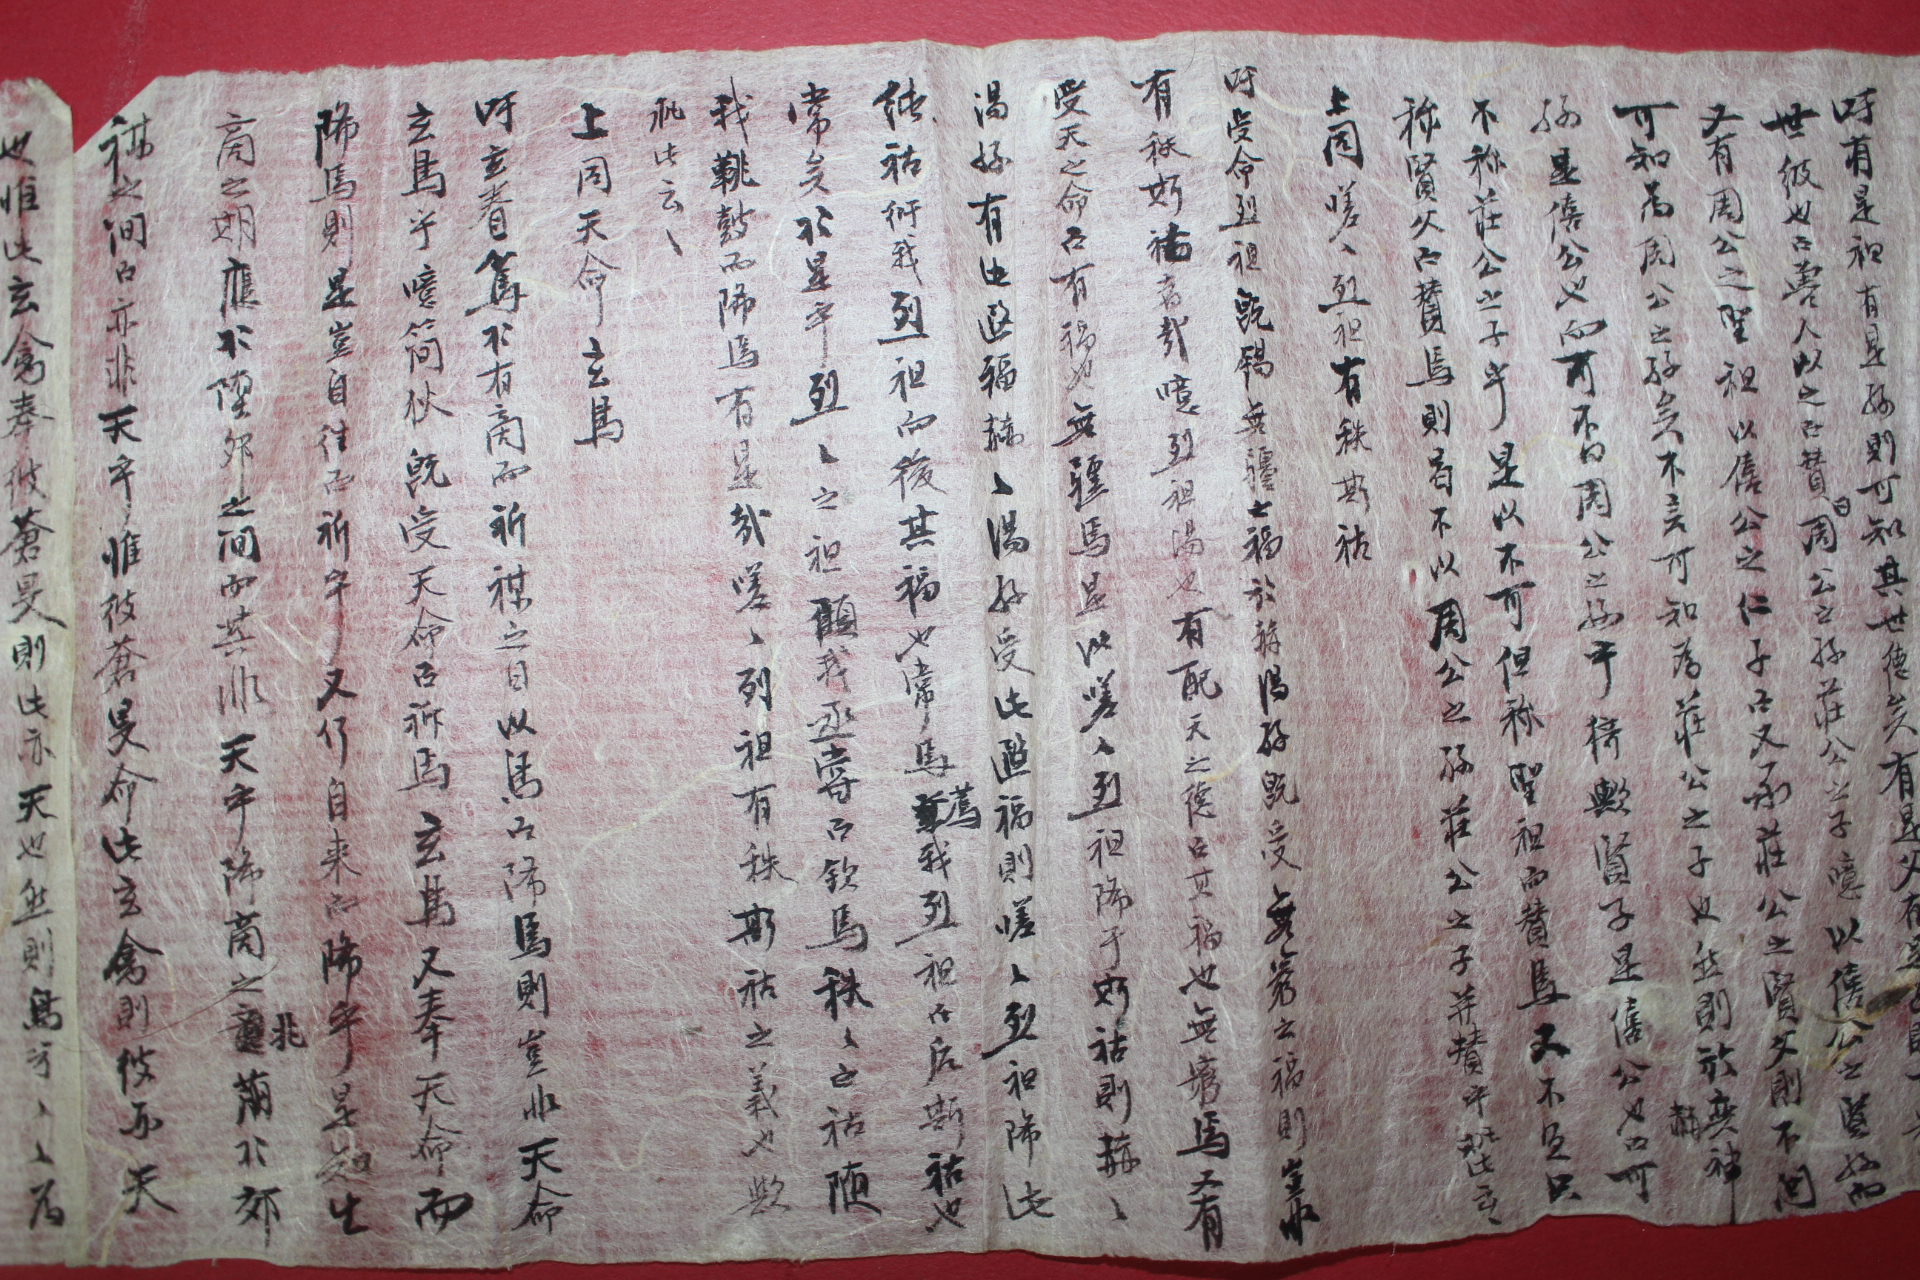 吁有是祖有是孫則可知其世德矣有是父有是
世後也而魯人以之而贊曰周公之孫莊公之子噫以僖公之賢孫而
又有周公之聖祖以僖公之仁子而又承莊公之賢父則不問
可知為周公之孫矣不言可知為莊公之子也然則於奕神
孫是僖公也而可不曰周公之孫乎猗歟賢子是僖公也而可
不称莊公之子乎是以不可但称聖祖而贊焉又不足只
称賢父而贊焉則曷不以周公之孫莊公之子並贊乎
上同嗟〻烈祖有秩斯祜
吁受命烈祖旣錫無疆之福於赫湯孫旣受無窮之福則豈非
有秩斯福者哉噫烈祖湯也有配天之德而其福也無窮焉又有
受天之命而有福也無疆焉是以嗟〻烈祖降于斯祜則赫〻
湯孫有此遐福赫〻湯孫受此遐福則嗟〻烈祖降此
純祜衎我烈祖而後其福也常焉薦我烈祖而后斯祜也
常矣於是乎烈〻之祖顧我烝嘗而欽焉秩〻之祜隨
我鞉鼓而降焉有是哉嗟〻列祖有秩斯祜之義也歟
於此云〻
上同天命玄鳥
吁玄春鳥於有商而祈禖之日以鳥而降焉則豈非天命
玄鳥乎噫簡狄旣受天命而祈焉玄鳥又奉天命而
降焉則是豈自往而祈乎又何自来而降乎是知生
商之期應於墮卵之間而其非天乎降商之兆萌於郊
禖之間而亦非天乎惟彼蒼旻命此玄禽則彼亦天
也惟此玄禽奉彼蒼旻則此亦天也然則鳥乎〻〻為